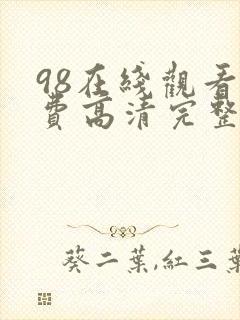 98在綫觀看
費高清完整
葵二葉,紅三葉